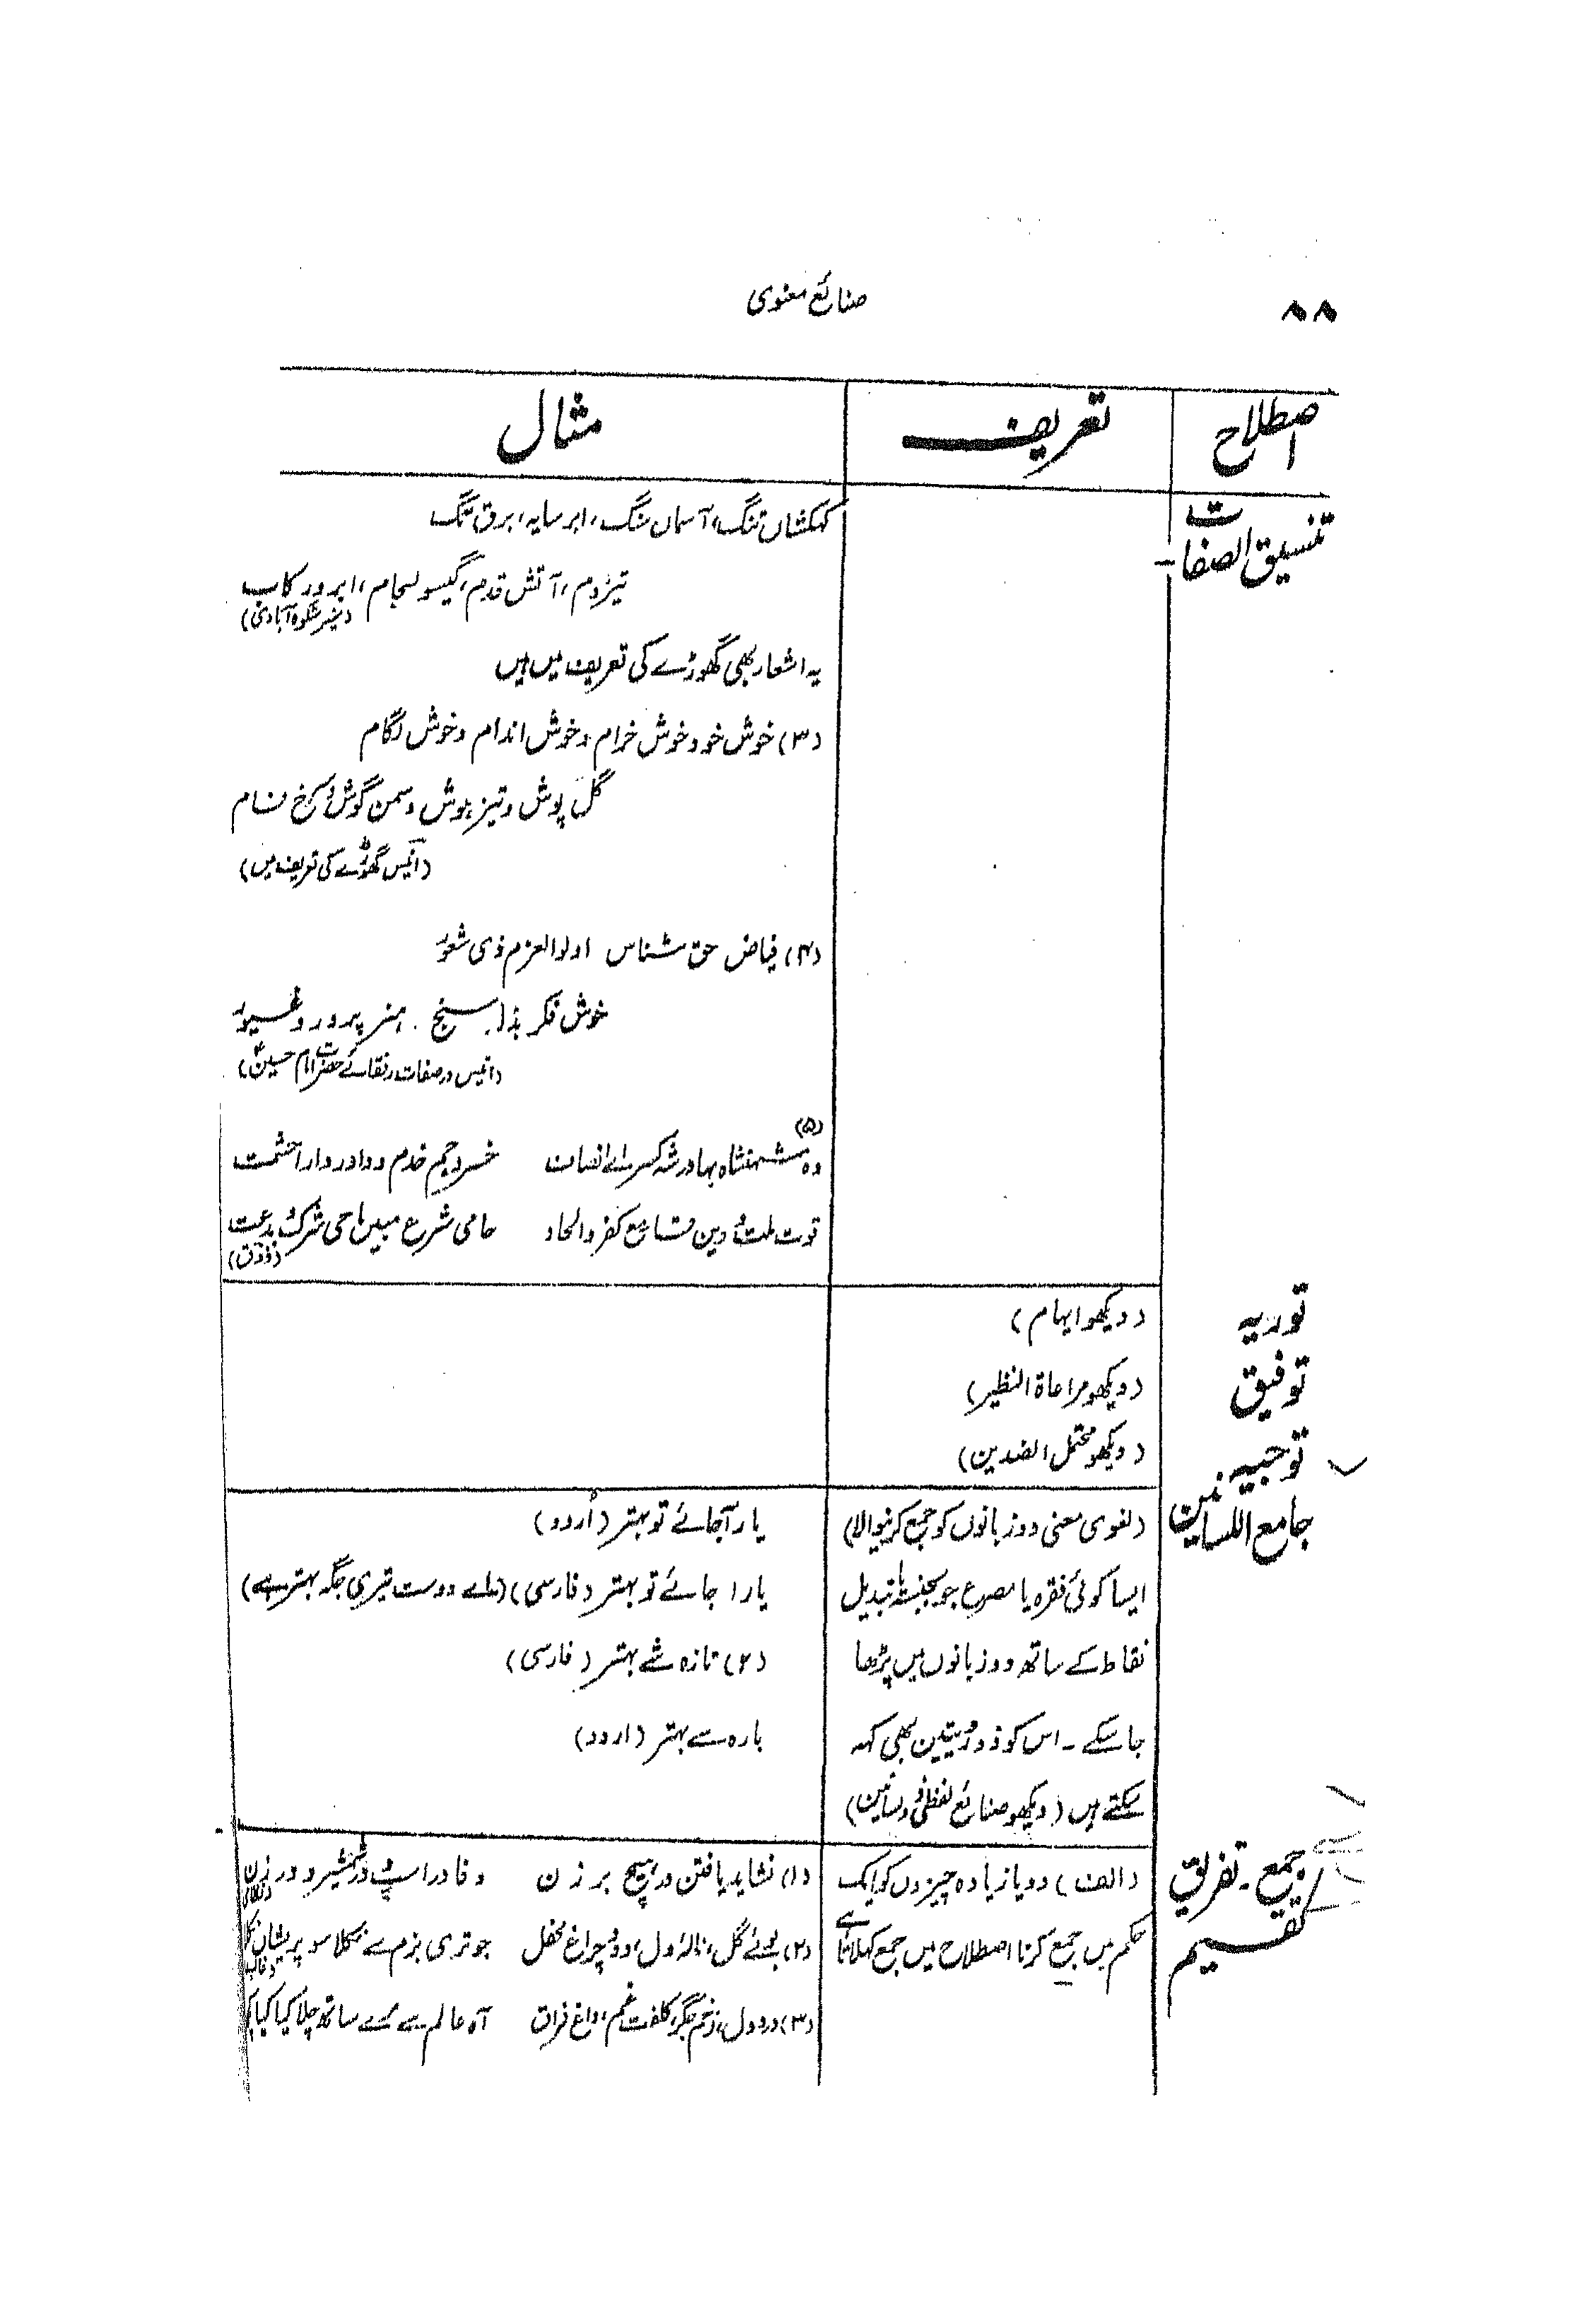 ۸۸
صنائع معنوی
اصطلاح
تعریف
مثال
تنسیق الصفات
کہکشاں تنگ، آسماں سنگ، ابر سایہ، برق تگ
تیز دم، آتش قدم، گیسو لجام، ابرو رکاب
(منیر شکوہ آبادی)
یہ اشعار بھی گھوڑے کی تعریف میں ہیں
(۳) خوش خو و خوش خرام و خوش اندام و خوش لگام
گل پوش و تیز ہوش و سمن گوش و سرخ فام
(انیس گھوڑے کی تعریف میں)
(۴) فیاض حق شناس اولوالعزم ذی شعور
خوش فکر بذلہ سنج ہنر پرور و غیور
(انیس در صفات رفقائے حضرت امام حسینؑ)
(۵)
وہ شہنشاہ بہادر شہ کسریٰ انصاف خسرو جم خدم و داور دارا حشمت
قوت ملت و دین قامع کفر و الحاد حامی شرع مبیں ماحی شرک و بدعت
(ذوق)
توریہ
(دیکھو ایہام)
توفیق
(دیکھو مراعاة النظیر)
توجیہ
(دیکھو محتمل الضدین)
جامع اللسانین
(لغوی معنی دو زبانوں کو جمع کرنیوالا)
ایسا کوئی فقرہ یا مصرع جو بجنسہٖ یا تبدیل
نقاط کے ساتھ دو زبانوں میں پڑھا
جا سکے ۔ اس کو ذو رویتین بھی کہہ
سکتے ہیں (دیکھو صنائع لفظی ذو لسانین)
یار آجائے تو بہتر (اُردو)
یارا جائے تو بہتر (فارسی) (اے دوست تیری جگہ بہتر ہے)
(۲) تازہ شے بہتر (فارسی)
بارہ سے بہتر (اردو)
جمع ۔ تفریق
تقسیم
(الف) دو یا زیادہ چیزوں کو ایک
حکم میں جمع کرنا اصطلاح میں جمع کہلاتا ہے
(۱) نشاید یافتن در ہیچ برزن وفا در اسپ و در شمشیر و در زن
(۲) بوئے گل، نالۂ دل، دود چراغ محفل جو تری بزم سے نکلا سو پریشاں نکلا
(غالب)
(۳) درد دل، زخم جگر، کلفت غم، داغ فراق آہ عالم سے مرے ساتھ چلا کیا کیا